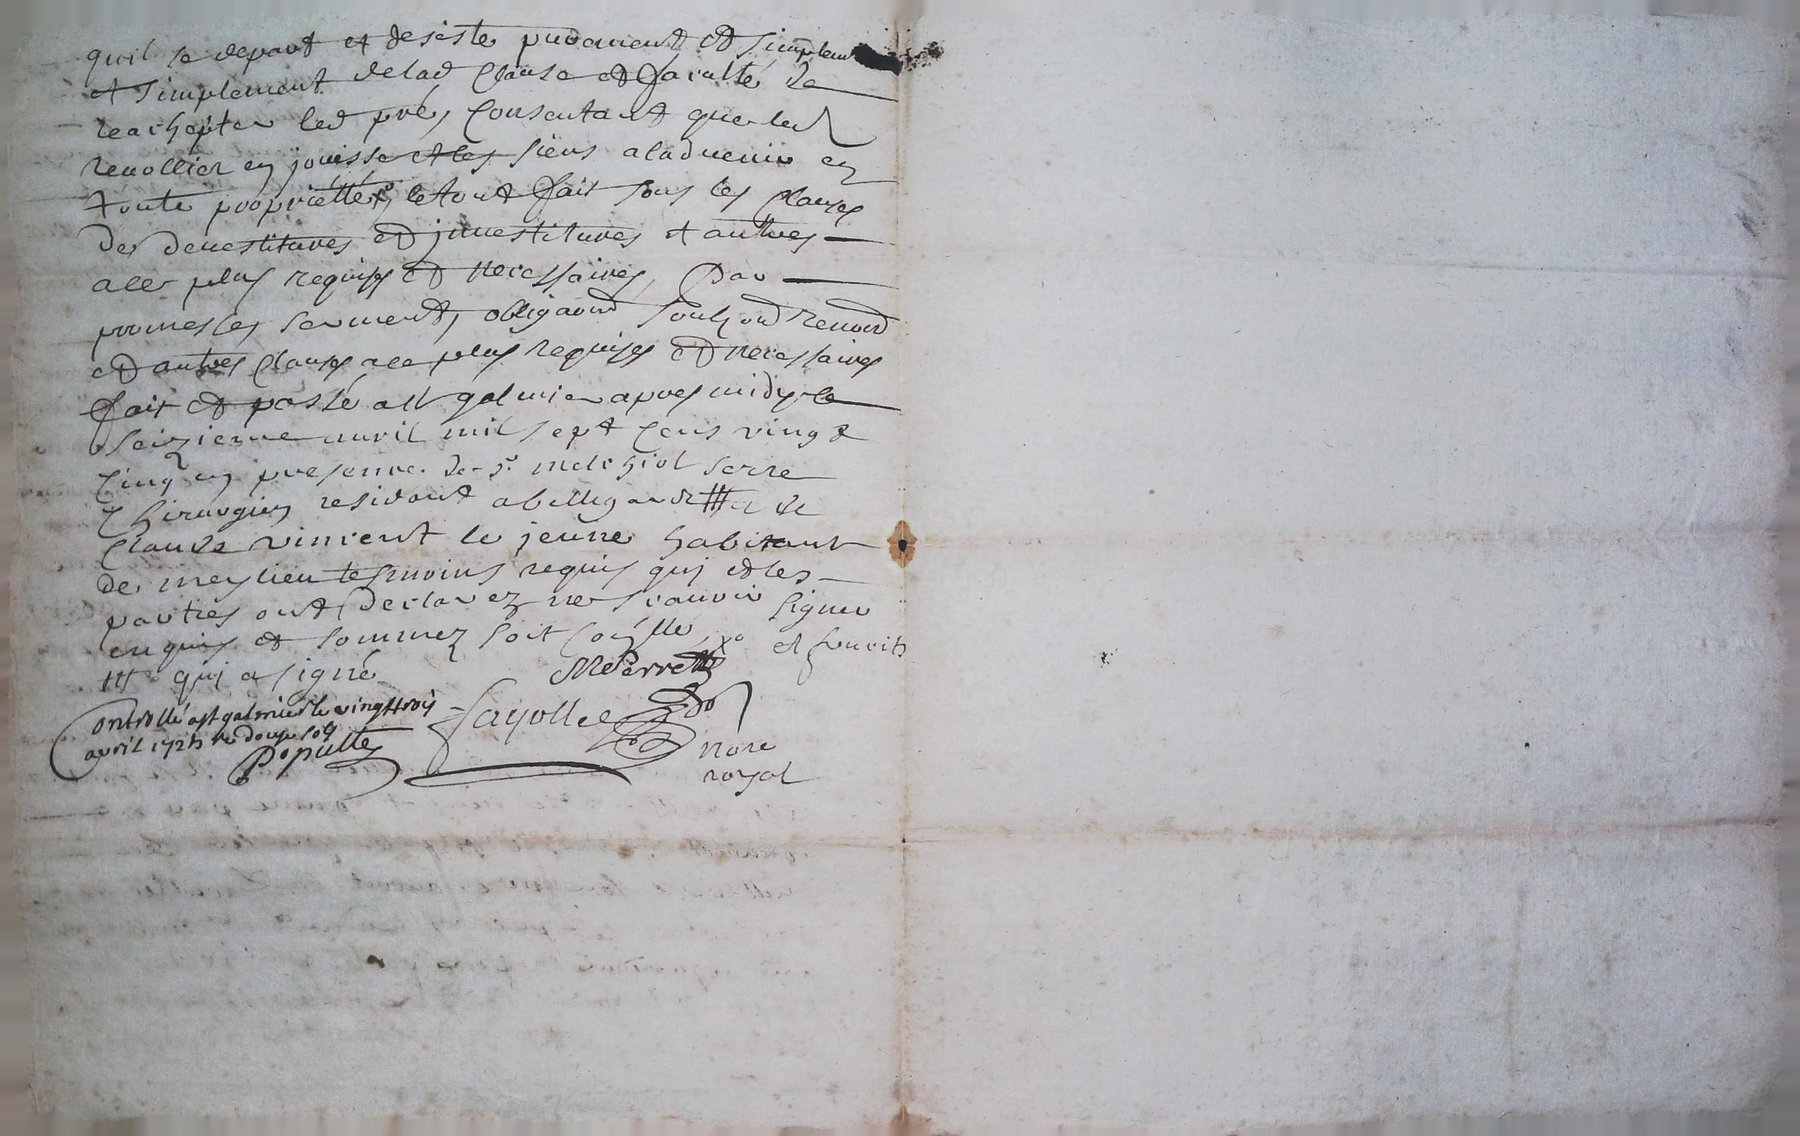 quil se depart et desiste purement et simplem
et simplement delad clause et faculté de
reachepter led pré, consentant que led
reuollier en jouisse et les siens aladuenir en
toute proprietté, le tout fait sous les clauses
de deuestitures et jnuestitures et autres
ace plus requises et necessaires, Par
promesses serment, obligaond soubzond Renond
et autres clauses ace plus requises et necessaires
fait et passé a st galmier apres midy le
seizieme auril mil sept cens vingt
cinq en presence de sr melchiol serre
chirurgien residant a bellegarde # et de
claude vincent le jeune habitant
de meylieu tesmoins requis qui et les
parties ont declarez ne scauoir signer
enquis et sommez soit conslle, et souscris
# qui a signé
MeSerre
Controllé a st galmier le vingt trois
auril 1725 Re douze sols
Popülle
fayolle
nore
royal